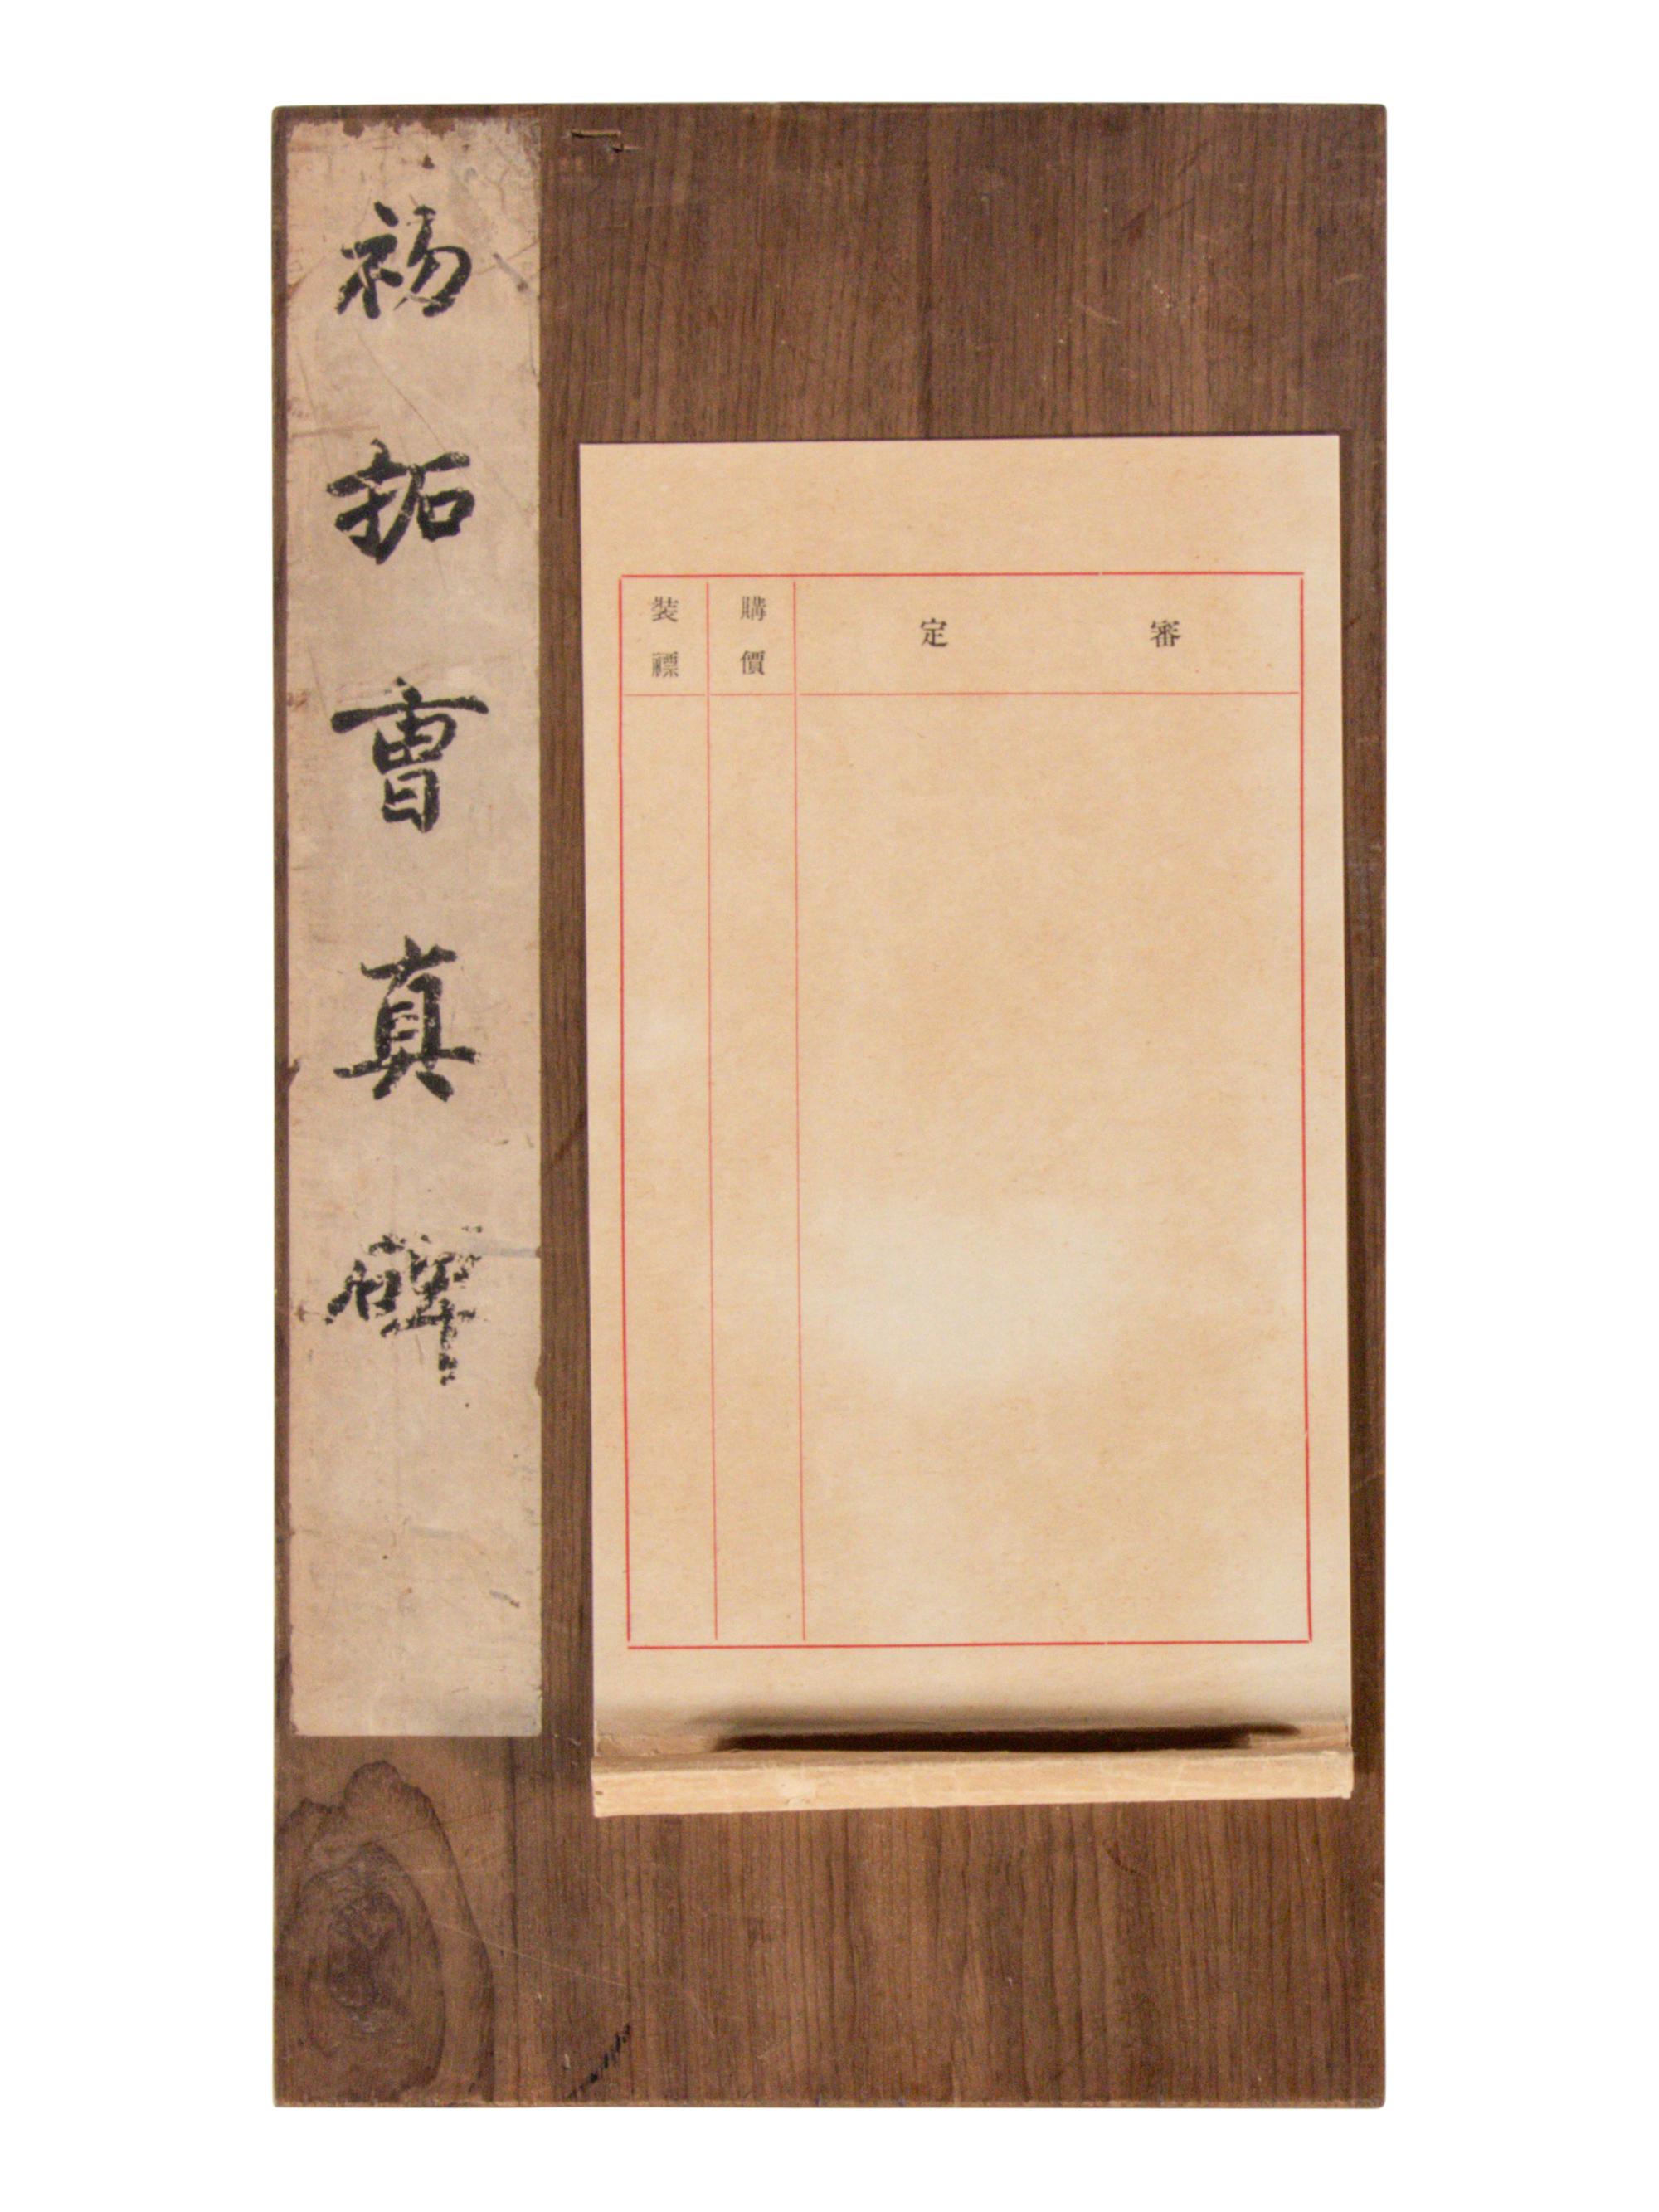 初拓曹真碑
審定
購價
装標